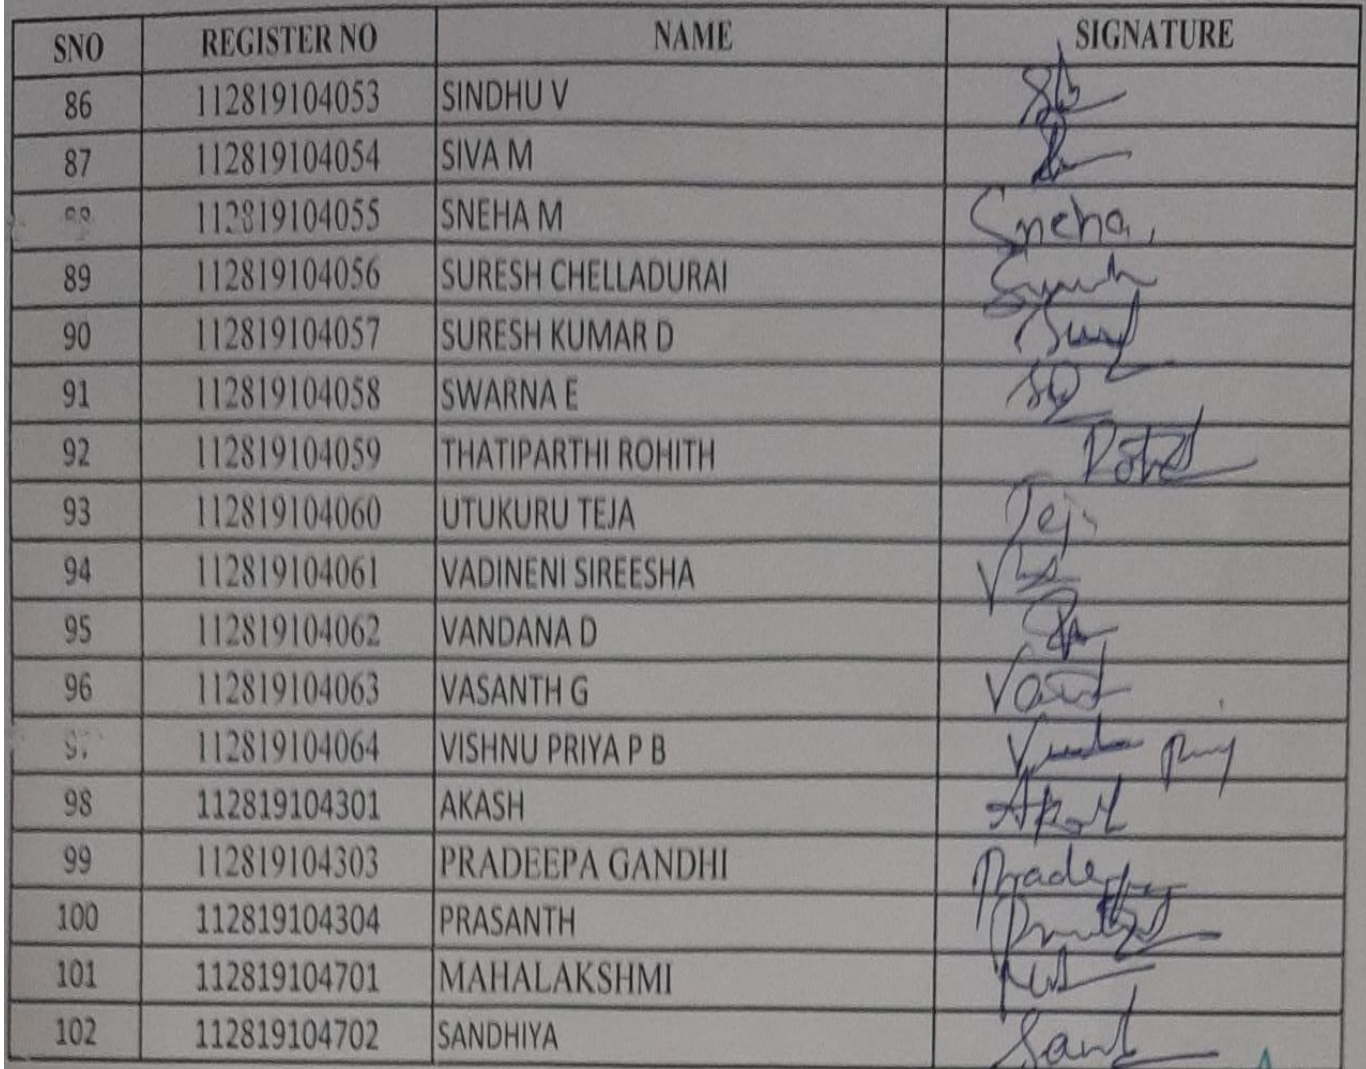 SNO REGISTER NO NAME SIGNATURE
86 112819104053 SINDHU V
87 112819104054 SIVA M
88 112819104055 SNEHA M Sneha,
89 112819104056 SURESH CHELLADURAI
90 112819104057 SURESH KUMAR D
91 112819104058 SWARNA E
92 112819104059 THATIPARTHI ROHITH
93 112819104060 UTUKURU TEJA
94 112819104061 VADINENI SIREESHA
95 112819104062 VANDANA D
96 112819104063 VASANTH G
97 112819104064 VISHNU PRIYA P B
98 112819104301 AKASH
99 112819104303 PRADEEPA GANDHI
100 112819104304 PRASANTH
101 112819104701 MAHALAKSHMI
102 112819104702 SANDHIYA